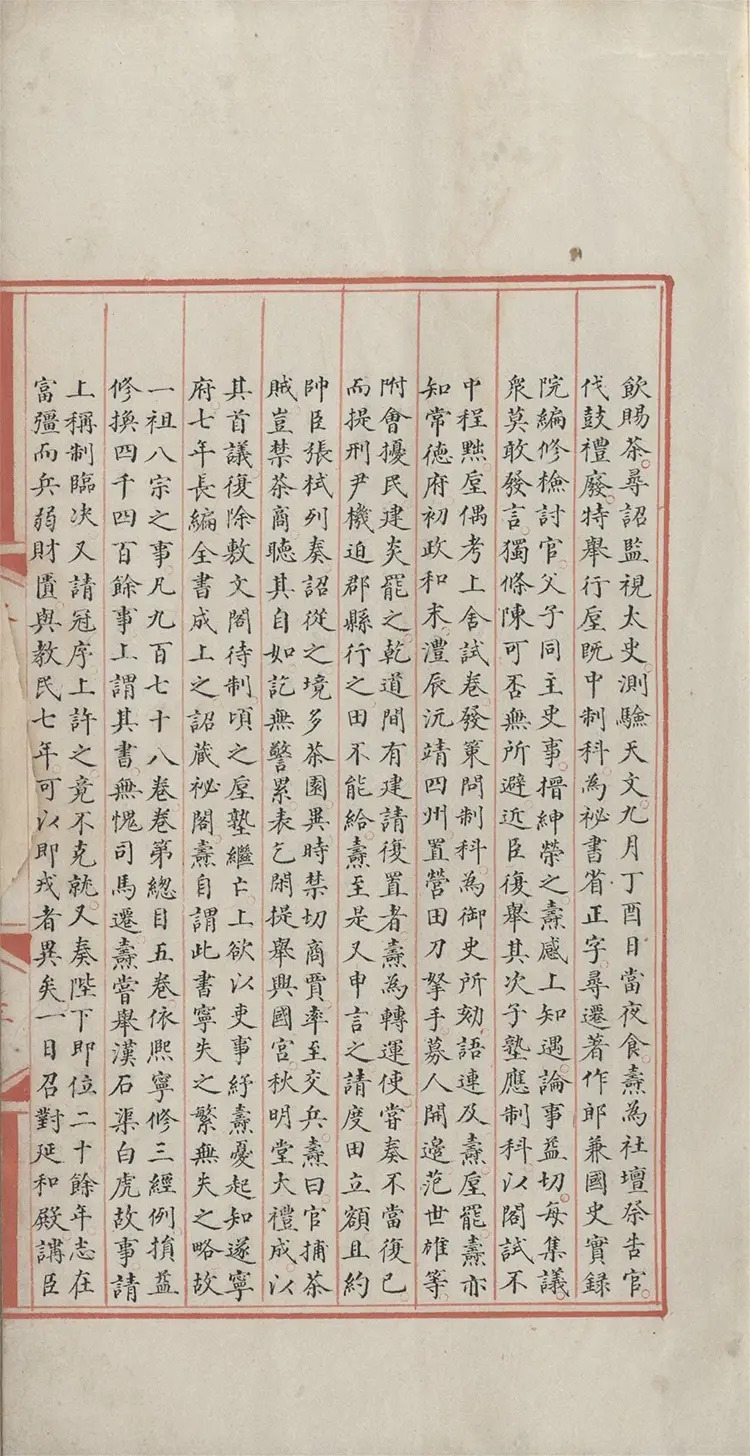 飲賜茶尋詔監視太史測驗天文九月丁酉日當夜食燾為社壇祭告官
代鼓禮廢特舉行垕既中制科為祕書省正字尋遷著作郎兼國史實録
院編修檢討官父子同主史事搢紳榮之燾感上知遇論事益切每集議
衆莫敢發言獨條陳可否無所避近臣復舉其次子塾應制科以閣試不
中程黜垕偶考上舍試卷發策問制科為御史所劾語連及燾垕罷燾亦
知常德府初政和末澧辰沅靖四州置營田刀弩手募人開邊范世雄等
附會擾民建炎罷之乾道間有建請復置者燾為轉運使嘗奏不當復已
而提刑尹機迫郡縣行之田不能給燾至是又申言之請度田立額且約
帥臣張栻列奏詔從之境多茶園異時禁切商賈率至交兵燾曰官捕茶
賊豈禁茶商聽其自如訖無警累表乞閑提舉興國宮秋明堂大禮成以
其首議復除敷文閣待制頃之垕塾繼亡上欲以吏事紓燾憂起知遂寧
府七年長編全書成上之詔蔵祕閣燾自謂此書寧失之繁無失之略故
一祖八宗之事凡九百七十八卷卷第總目五卷依熙寧修三經例損益
修換四千四百餘事上謂其書無愧司馬遷燾嘗舉漢石渠白虎故事請
上稱制臨決又請冠序上許之竟不克就又奏陛下即位二十餘年志在
富彊而兵弱財匱與教民七年可以即戎者異矣一日召對延和殿講臣